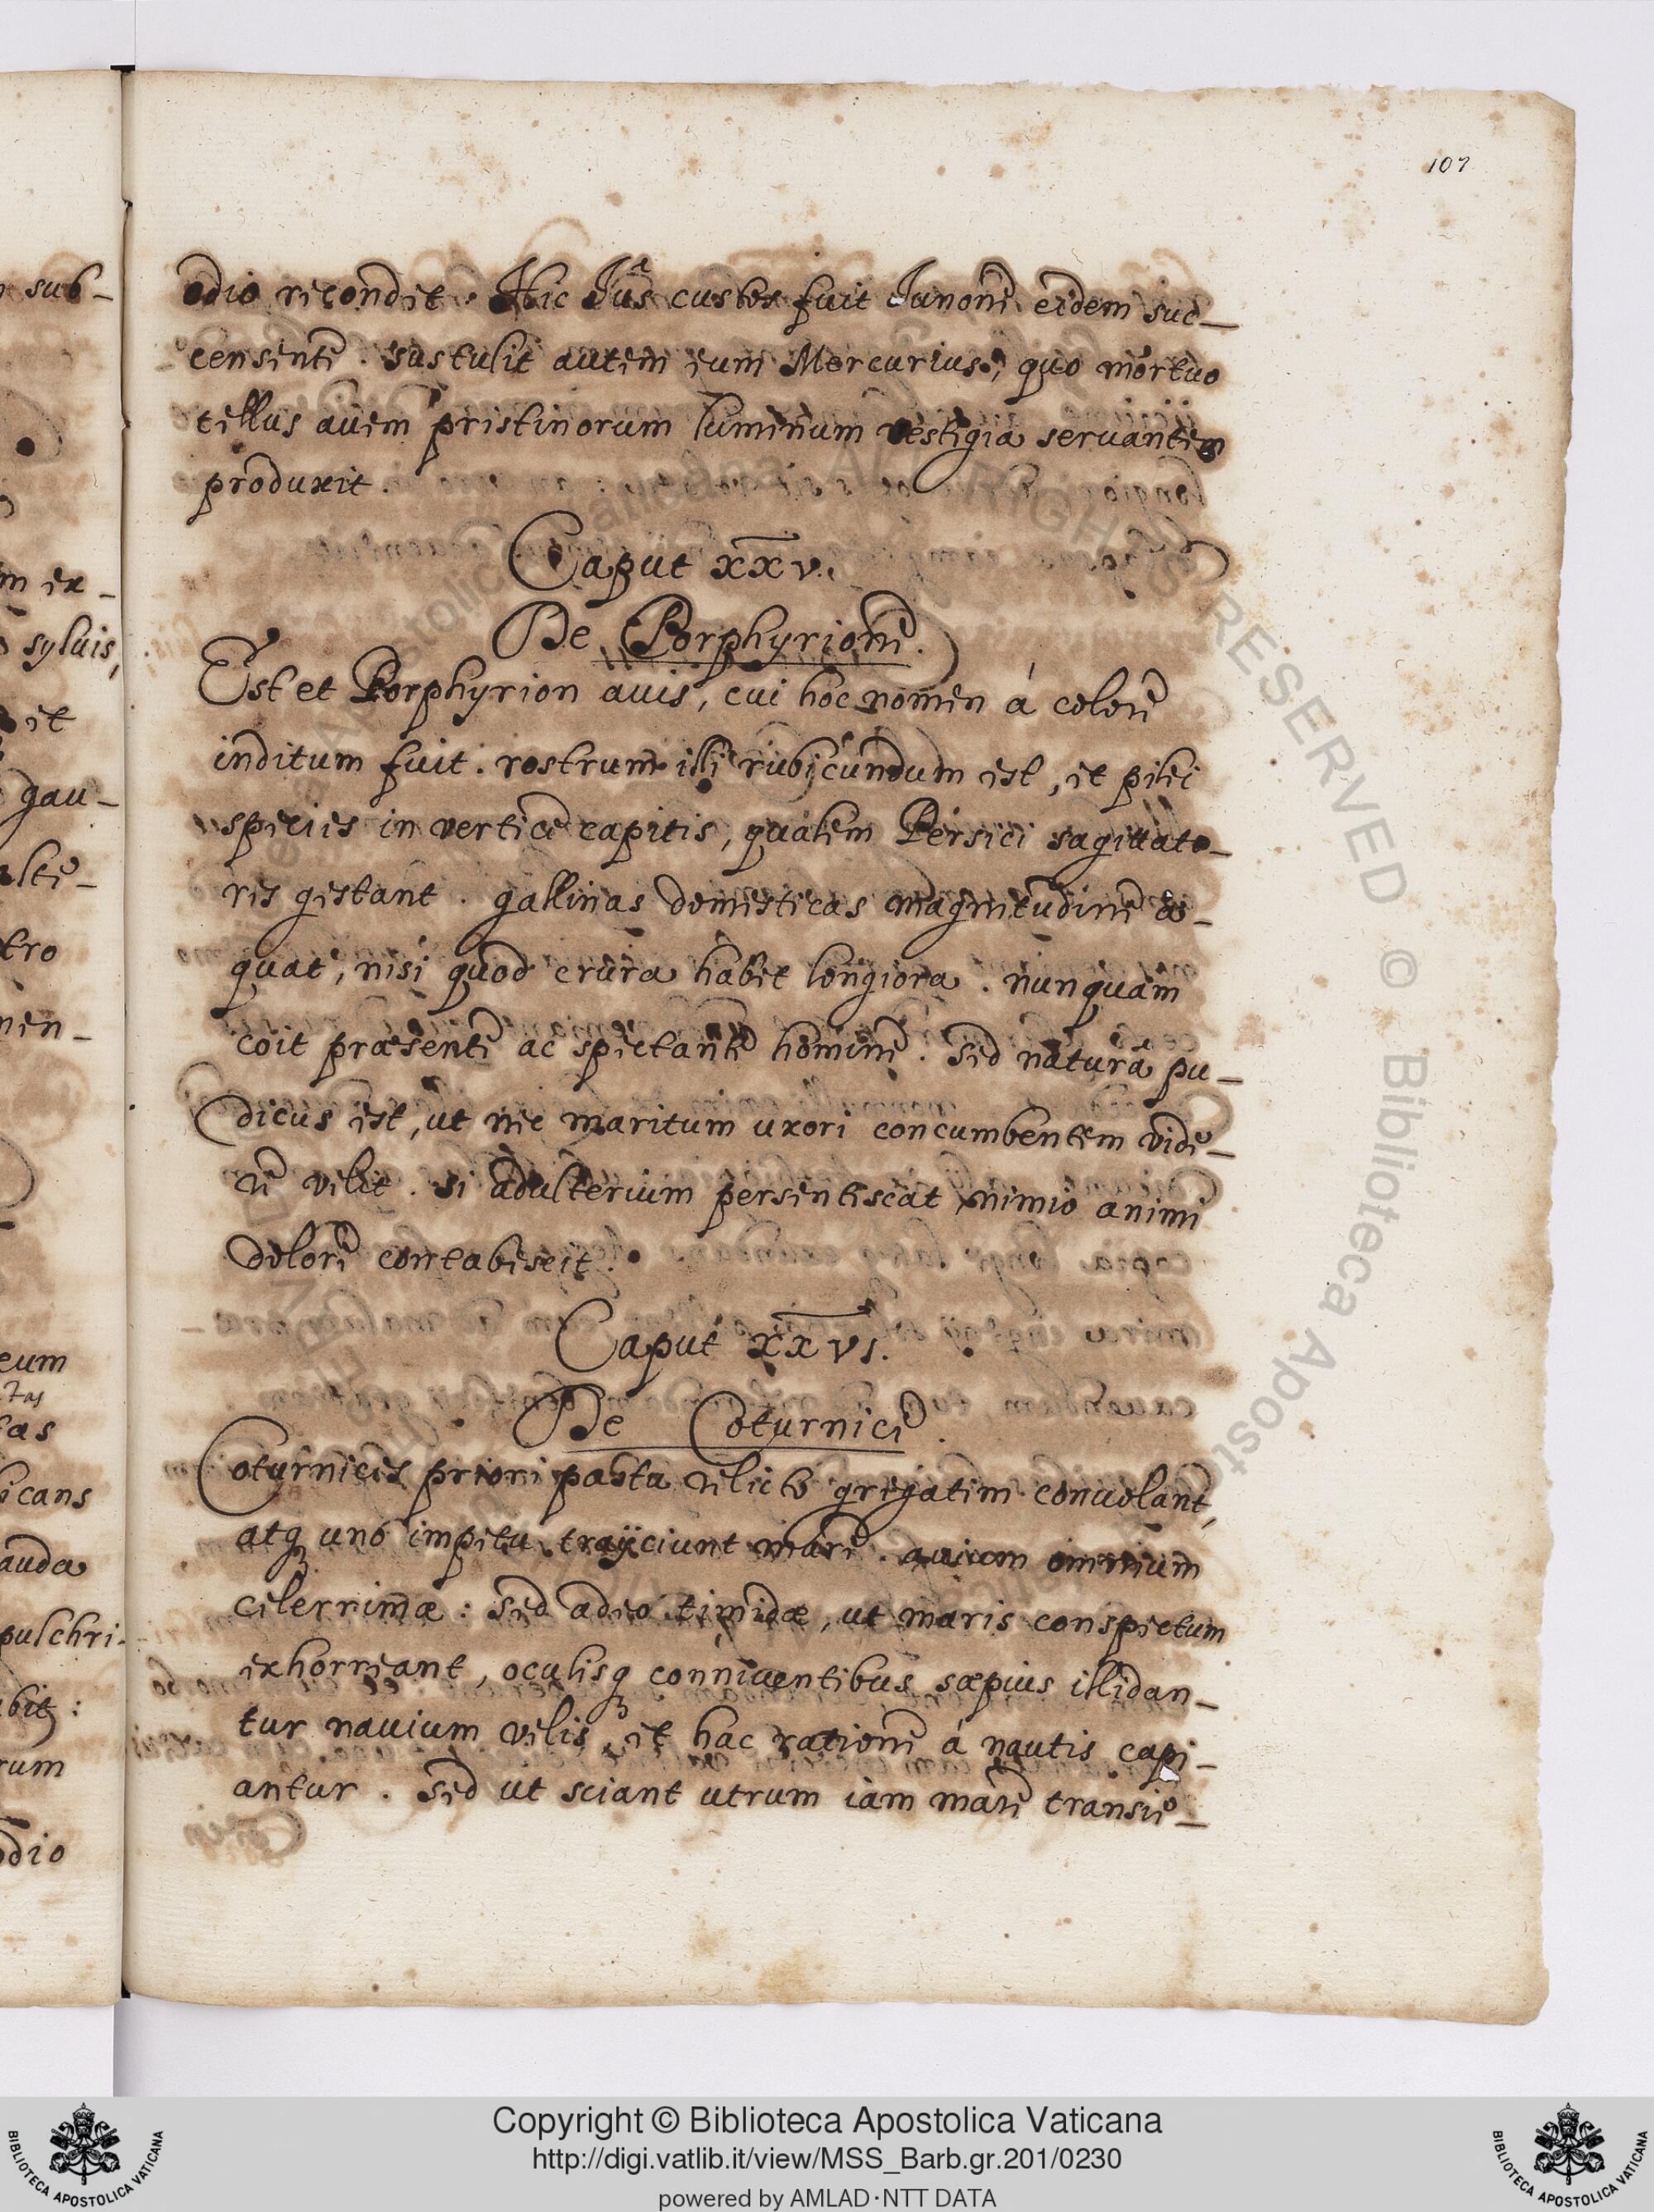 107
odio recondit. Hic Iûs custos fuit Iunone eidem suc-
censente. sustulit autem eum Mercurius, quo mortuo
tellus auem pristinorum luminum vestigia seruantem
produxit.
Caput xxv.
De Porphyrione.
Est et Porphyrion auis, cui hoc nomen á colore
inditum fuit. rostrum illi rubicundum est, et pilei
species in vertice capitis, qualem Persici sagittato-
res gestant. gallinas domesticas magnitudine æ-
quat, nisi quod crura habet longiora. nunquam
coit præsente ac spectante homine. Sed naturâ pu-
dicus est, ut nec maritum uxori concumbentem vide-
re velit. si adulterium persentiscat nimio animi
dolore contabescit.
Caput xxvi.
De Coturnice.
Coturnices priori pastu relicto gregatim conuolant,
atq; uno impetu traijciunt mare. auium omnium
celerrimæ: Sed adeo timidæ, ut maris conspectum
exhorreant, oculisq; conniuentibus sæpius illidan-
tur nauium velis, et hac ratione á nautis capi-
antur. Sed ut sciant utrum iam mare transie-
sub-
ex-
syluis,
et
gau-
tro
eum
icans
auda
pulchri-
rum
odio
Copyright © Biblioteca Apostolica Vaticana
http://digi.vatlib.it/view/MSS_Barb.gr.201/0230
powered by AMLAD·NTT DATA
BIBLIOTECA APOSTOLICA VATICANA
BIBLIOTECA APOSTOLICA VATICANA